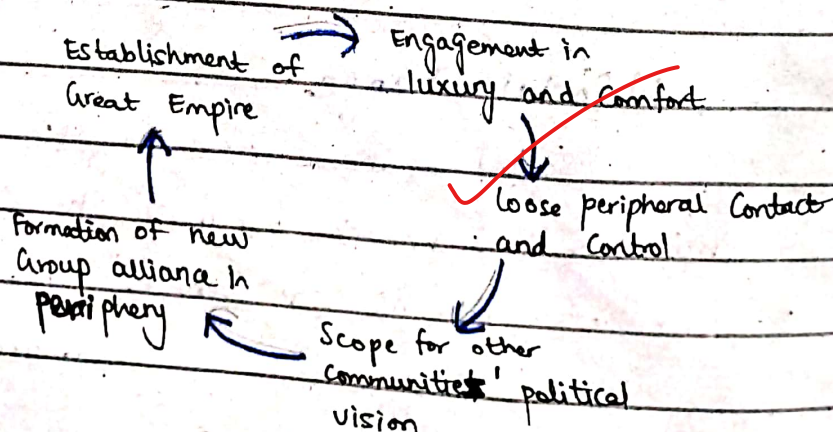 Establishment of
Great Empire
Engagement in
luxury and Comfort
loose peripheral Contact
and Control
Scope for other
communities' political
vision
Formation of new
Group alliance In
periphery